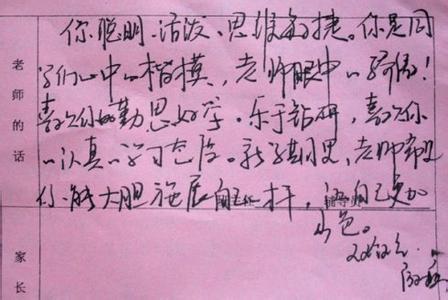 老师的话
你聪明、活泼、思维敏捷。你是同
学们心中的楷模，老师眼中的骄傲！
喜欢你的勤思好学、乐于钻研，喜欢你
的认真的学习态度。新学期里，老师希望
你能大胆施展自己的才，自己更加
出色。
家长